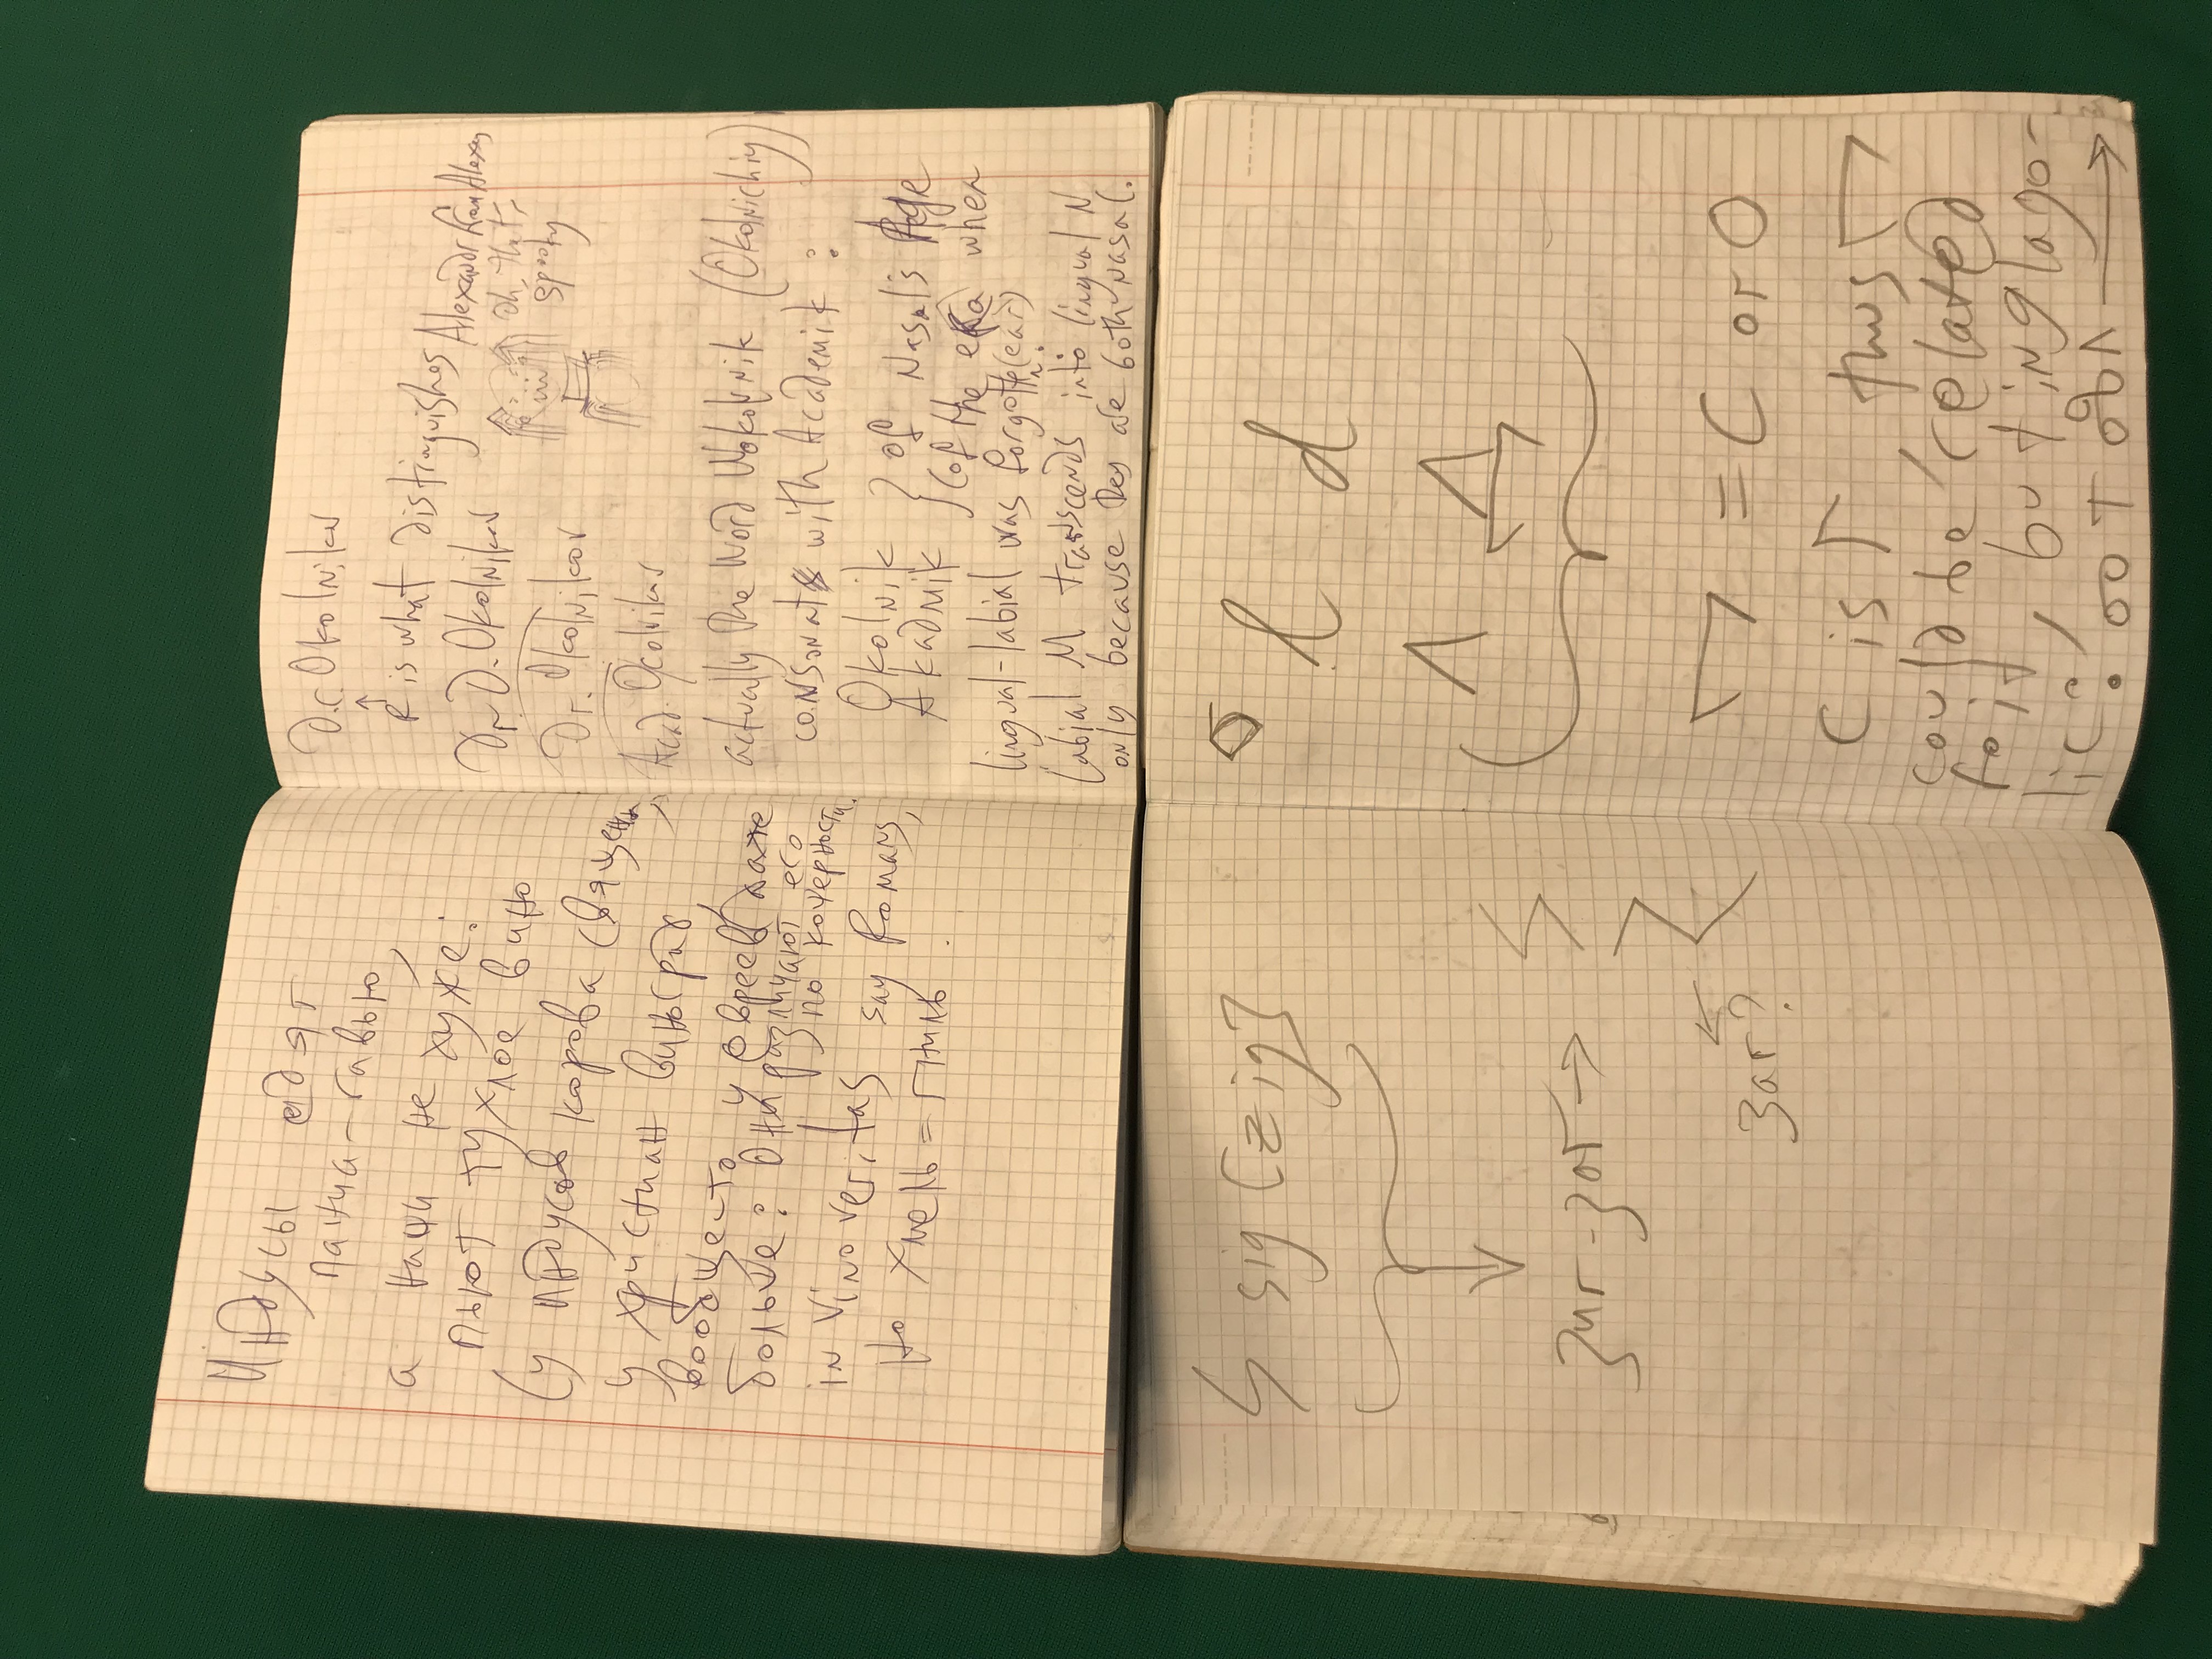 Индусы едят
панча-гавью,
а наши не хуже:
пьют тухлое вино
(у индусов корова священна,
у христиан виноград,
вообще-то у евреев даже
больше: Они различают его
по кошерности.
in vino veritas say Romans,
но хмель = гниль.
D.r. Okolnikov
↑
R is what distinguishes Alexandr from Alexey
Dr D. Okolnikov
oh, that's
spooky
Dr. Okolnikov
Acad. Ocolnikov
actually the word Wokolnik (Okolnichiy)
consonats with Academik:
Okolnik
Akadmik
} of Nasal's Age
(of the era when
lingual-labial was forgotten (ear)
Labial M transcends into lingual N
only because they are both nasal.
ϟ sig [zig]
зиг-заг →
заг?
l d
Λ Д
= C or O
C is Γ, thus
could be related
to it, but in glago-
lic: